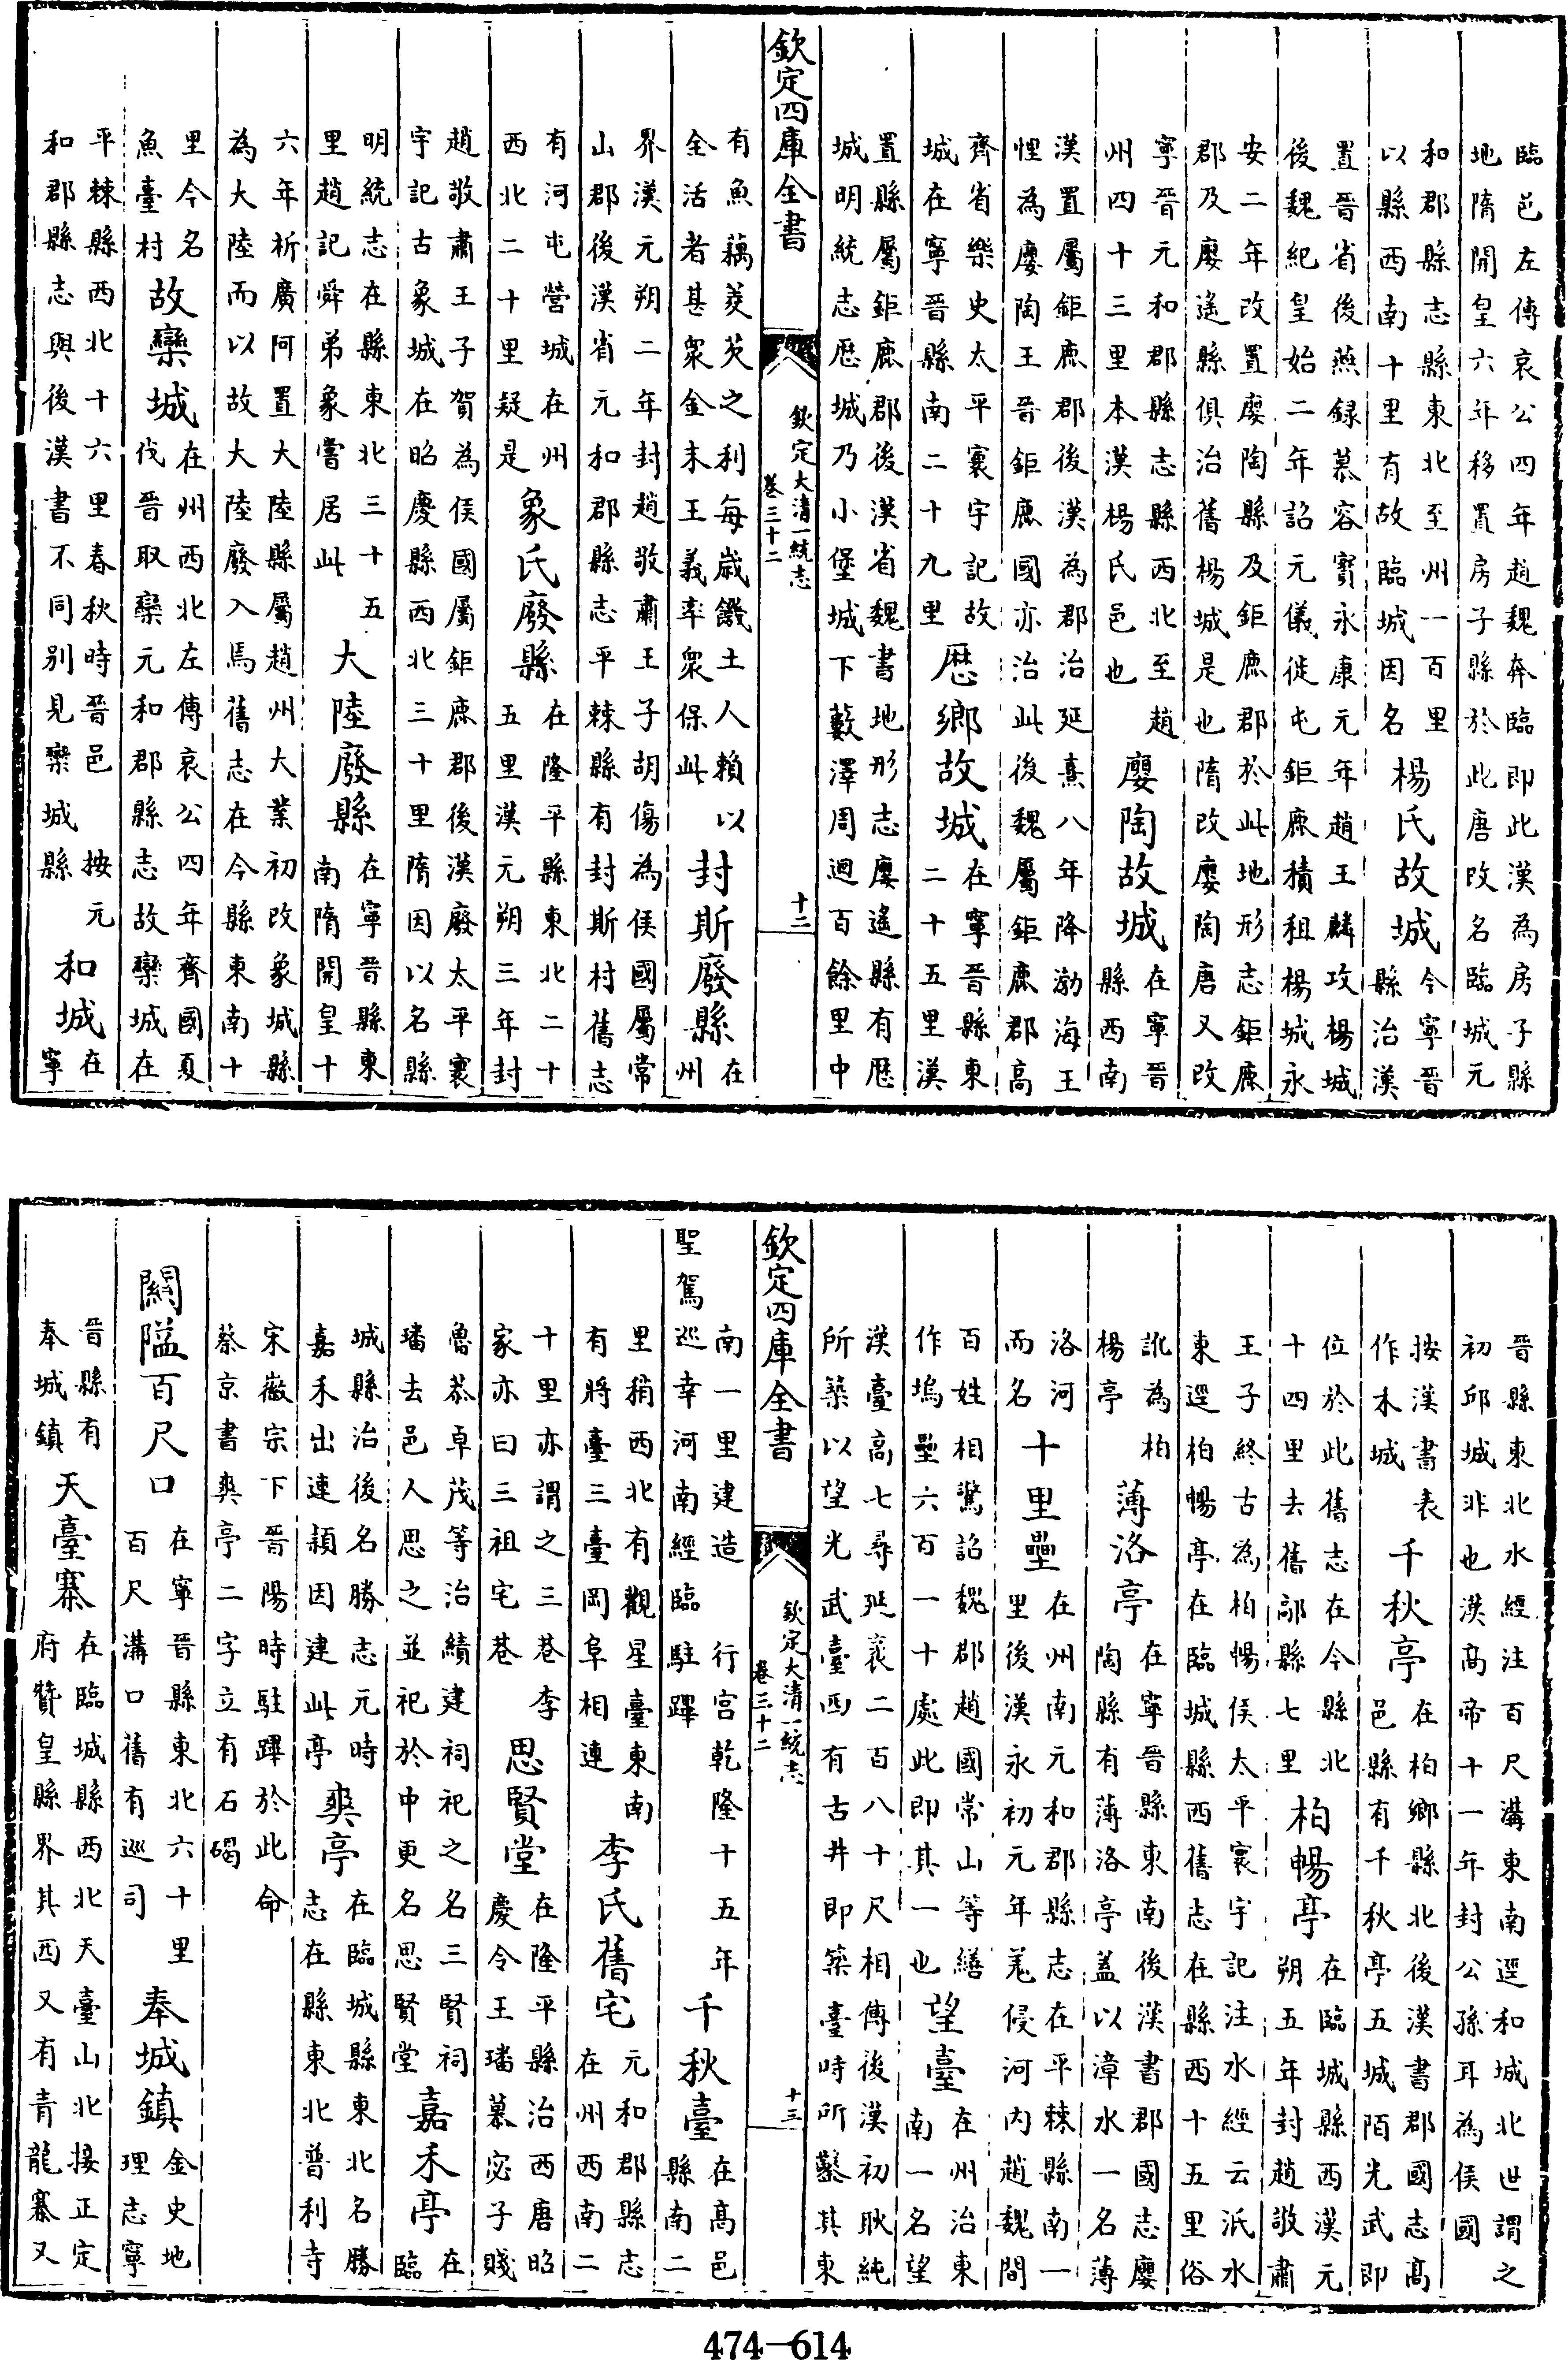 臨邑左傳哀公四年趙魏奔臨即此漢為房子縣
地隋開皇六年移置房子縣於此唐改名臨城元
和郡縣志縣東北至州一百里
以縣西南十里有故臨城因名
楊氏故城
今寧晉
縣治漢
置晉省後燕録慕容寳永康元年趙王麟攻楊城
後魏紀皇始二年詔元儀徙屯鉅鹿積租楊城永
安二年改置廮陶縣及鉅鹿郡於此地形志鉅鹿
郡及廮遙縣俱治舊楊城是也隋改廮陶唐又改
寧晉元和郡縣志縣西北至趙
州四十三里本漢楊氏邑也
廮陶故城
在寧晉
縣西南
漢置屬鉅鹿郡後漢為郡治延熹八年降渤海王
悝為廮陶王晉鉅鹿國亦治此後魏屬鉅鹿郡高
齊省樂史太平寰宇記故
城在寧晉縣南二十九里
歴鄉故城
在寧晉縣東
二十五里漢
置縣屬鉅鹿郡後漢省魏書地形志廮遙縣有歴
城明統志歴城乃小堡城下藪澤周迴百餘里中
欽定四庫全書
欽定大清一統志
卷三十二
十二
有魚藕菱芡之利每歳饑土人賴以
全活者甚衆金末王義率衆保此
封斯廢縣
在
州
界漢元朔二年封趙敬肅王子胡傷為侯國屬常
山郡後漢省元和郡縣志平棘縣有封斯村舊志
有河屯營城在州
西北二十里疑是
象氏廢縣
在隆平縣東北二十
五里漢元朔三年封
趙敬肅王子賀為侯國屬鉅鹿郡後漢廢太平寰
宇記古象城在昭慶縣西北三十里隋因以名縣
明統志在縣東北三十五
里趙記舜弟象嘗居此
大陸廢縣
在寧晉縣東
南隋開皇十
六年析廣阿置大陸縣屬趙州大業初改象城縣
為大陸而以故大陸廢入焉舊志在今縣東南十
里今名
魚臺村
故欒城
在州西北左傳哀公四年齊國夏
伐晉取欒元和郡縣志故欒城在
平棘縣西北十六里春秋時晉邑 按元
和郡縣志與後漢書不同别見欒城縣
和城
在
寧
晉縣東北水經注百尺溝東南逕和城北世謂之
初邱城非也漢高帝十一年封公孫耳為侯國
按漢書表
作禾城
千秋亭
在柏鄉縣北後漢書郡國志高
邑縣有千秋亭五城陌光武即
位於此舊志在今縣北
十四里去舊鄗縣七里
柏暢亭
在臨城縣西漢元
朔五年封趙敬肅
王子終古為柏暢侯太平寰宇記注水經云泜水
東逕柏暢亭在臨城縣西舊志在縣西十五里俗
訛為柏
楊亭
薄洛亭
在寧晉縣東南後漢書郡國志廮
陶縣有薄洛亭蓋以漳水一名薄
洛河
而名
十里壘
在州南元和郡縣志在平棘縣南一
里後漢永初元年羌侵河内趙魏間
百姓相驚詔魏郡趙國常山等繕
作塢壘六百一十處此即其一也
望臺
在州治東
南一名望
漢臺高七尋延袤二百八十尺相傳後漢初耿純
所築以望光武臺西有古井即築臺時所鑿其東
欽定四庫全書
欽定大清一統志
卷三十二
十三
南一里建造 行宫乾隆十五年
聖駕巡幸河南經臨駐蹕
千秋臺
在高邑
縣南二
里稍西北有觀星臺東南
有將臺三臺岡阜相連
李氏舊宅
元和郡縣志
在州西南二
十里亦謂之三巷李
家亦曰三祖宅巷
思賢堂
在隆平縣治西唐昭
慶令王璠慕宓子賤
魯恭卓茂等治績建祠祀之名三賢祠
璠去邑人思之並祀於中更名思賢堂
嘉禾亭
在
臨
城縣治後名勝志元時
嘉禾出連穎因建此亭
爽亭
在臨城縣東北名勝
志在縣東北普利寺
宋徽宗下晉陽時駐蹕於此命
蔡京書爽亭二字立有石碣
關隘百尺口
在寧晉縣東北六十里
百尺溝口舊有巡司
奉城鎮
金史地
理志寧
晉縣有
奉城鎮
天臺寨
在臨城縣西北天臺山北接正定
府贊皇縣界其西又有青龍寨又
474—614